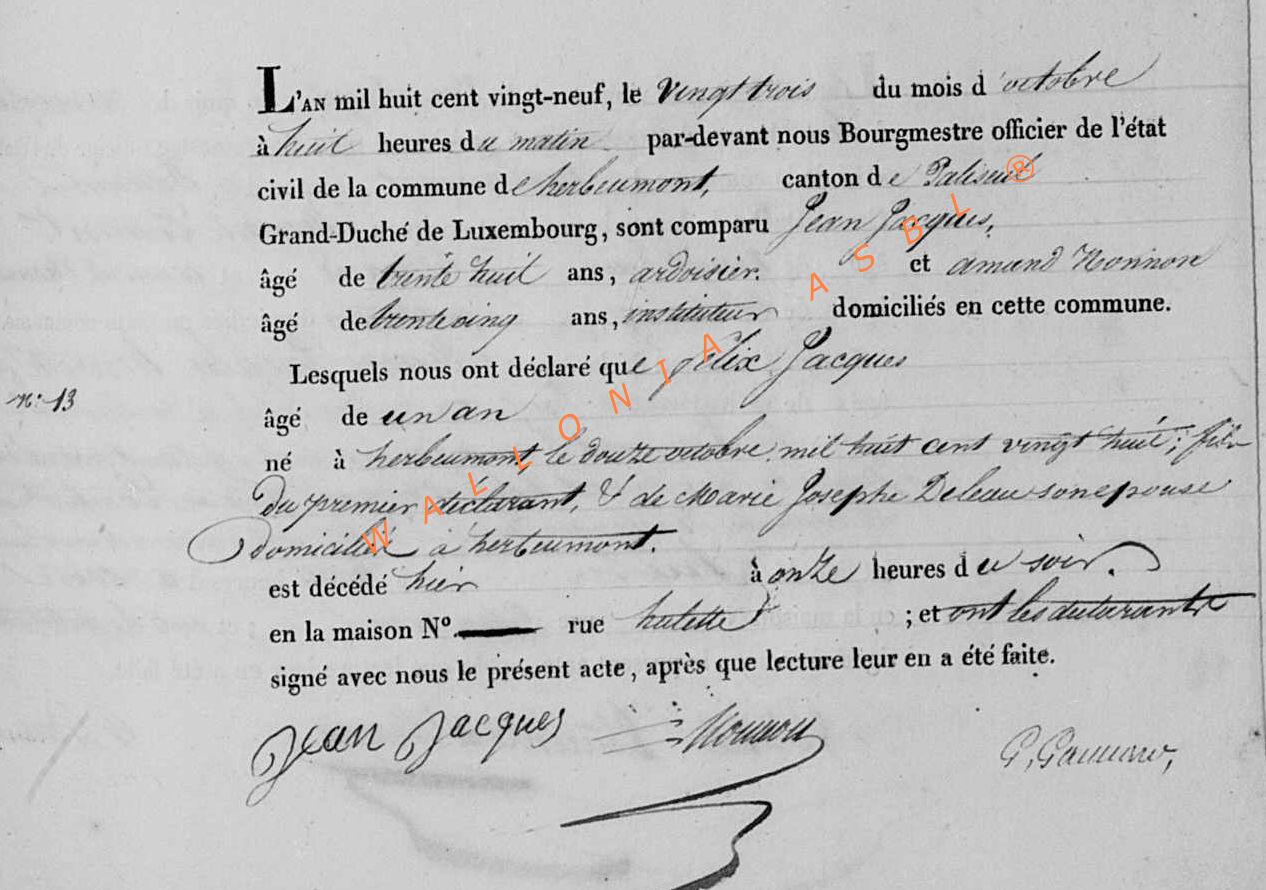 L'AN mil huit cent vingt-neuf, le vingt trois du mois d'octobre
à huit heures du matin par-devant nous Bourgmestre officier de l'état
civil de la commune de herbeumont, canton de Paliseul
Grand-Duché de Luxembourg, sont comparu Jean Jacques,
âgé de trente huit ans, ardoisier. et amand Nonnon
âgé de trente cinq ans, instituteur domiciliés en cette commune.
Lesquels nous ont déclaré que félix Jacques
n.º 13
âgé de un an
né à herbeumont, le douze octobre mil huit cent vingt huit, fils
du premier déclarant, & de Marie Josephe Deleau son epouse
domicilié à herbeumont.
est décédé hier à onze heures du soir.
en la maison Nº. rue ; et ont les déclarants
signé avec nous le présent acte, après que lecture leur en a été faite.
Jean Jacques Nonnon
WALLONIA ASBL ®